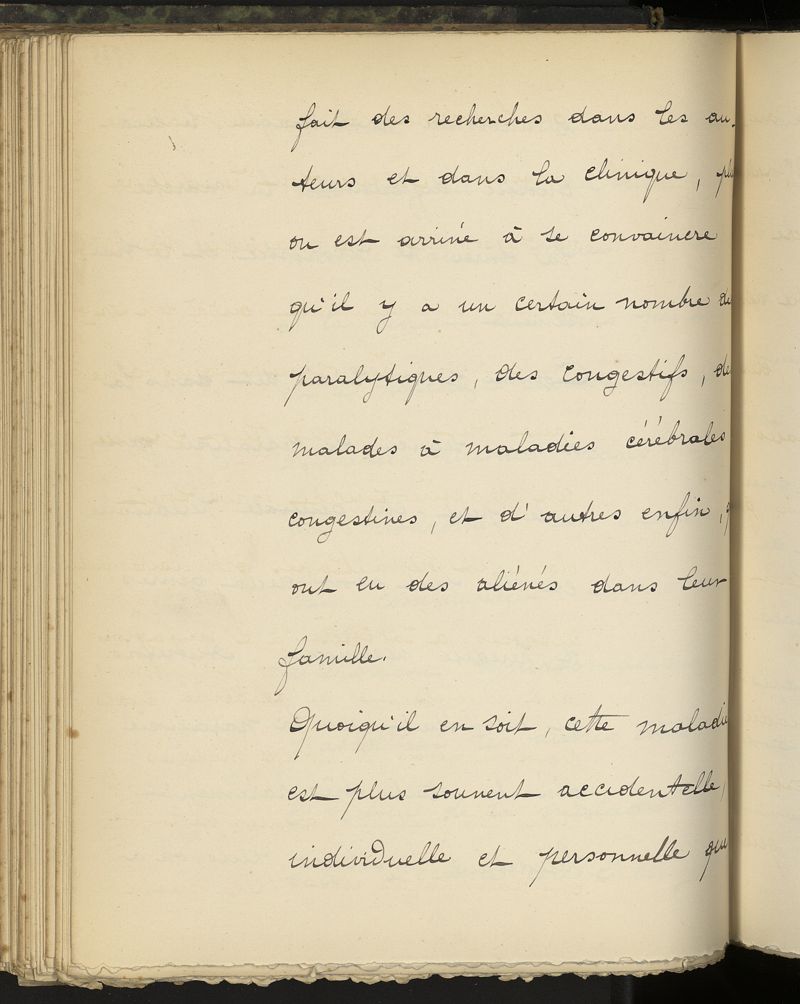 fait des recherches dans les au-
teurs et dans la clinique, plu
on est arrivé à se convaincre
qu'il y a un certain nombre de
paralytiques, des congestifs, de
malades à maladies cérébrales
congestives, et d'autres enfin, q
ont eu des aliénés dans leur
famille.
Quoiqu'il en soit, cette maladi
est plus souvent accidentelle,
individuelle et personnelle que